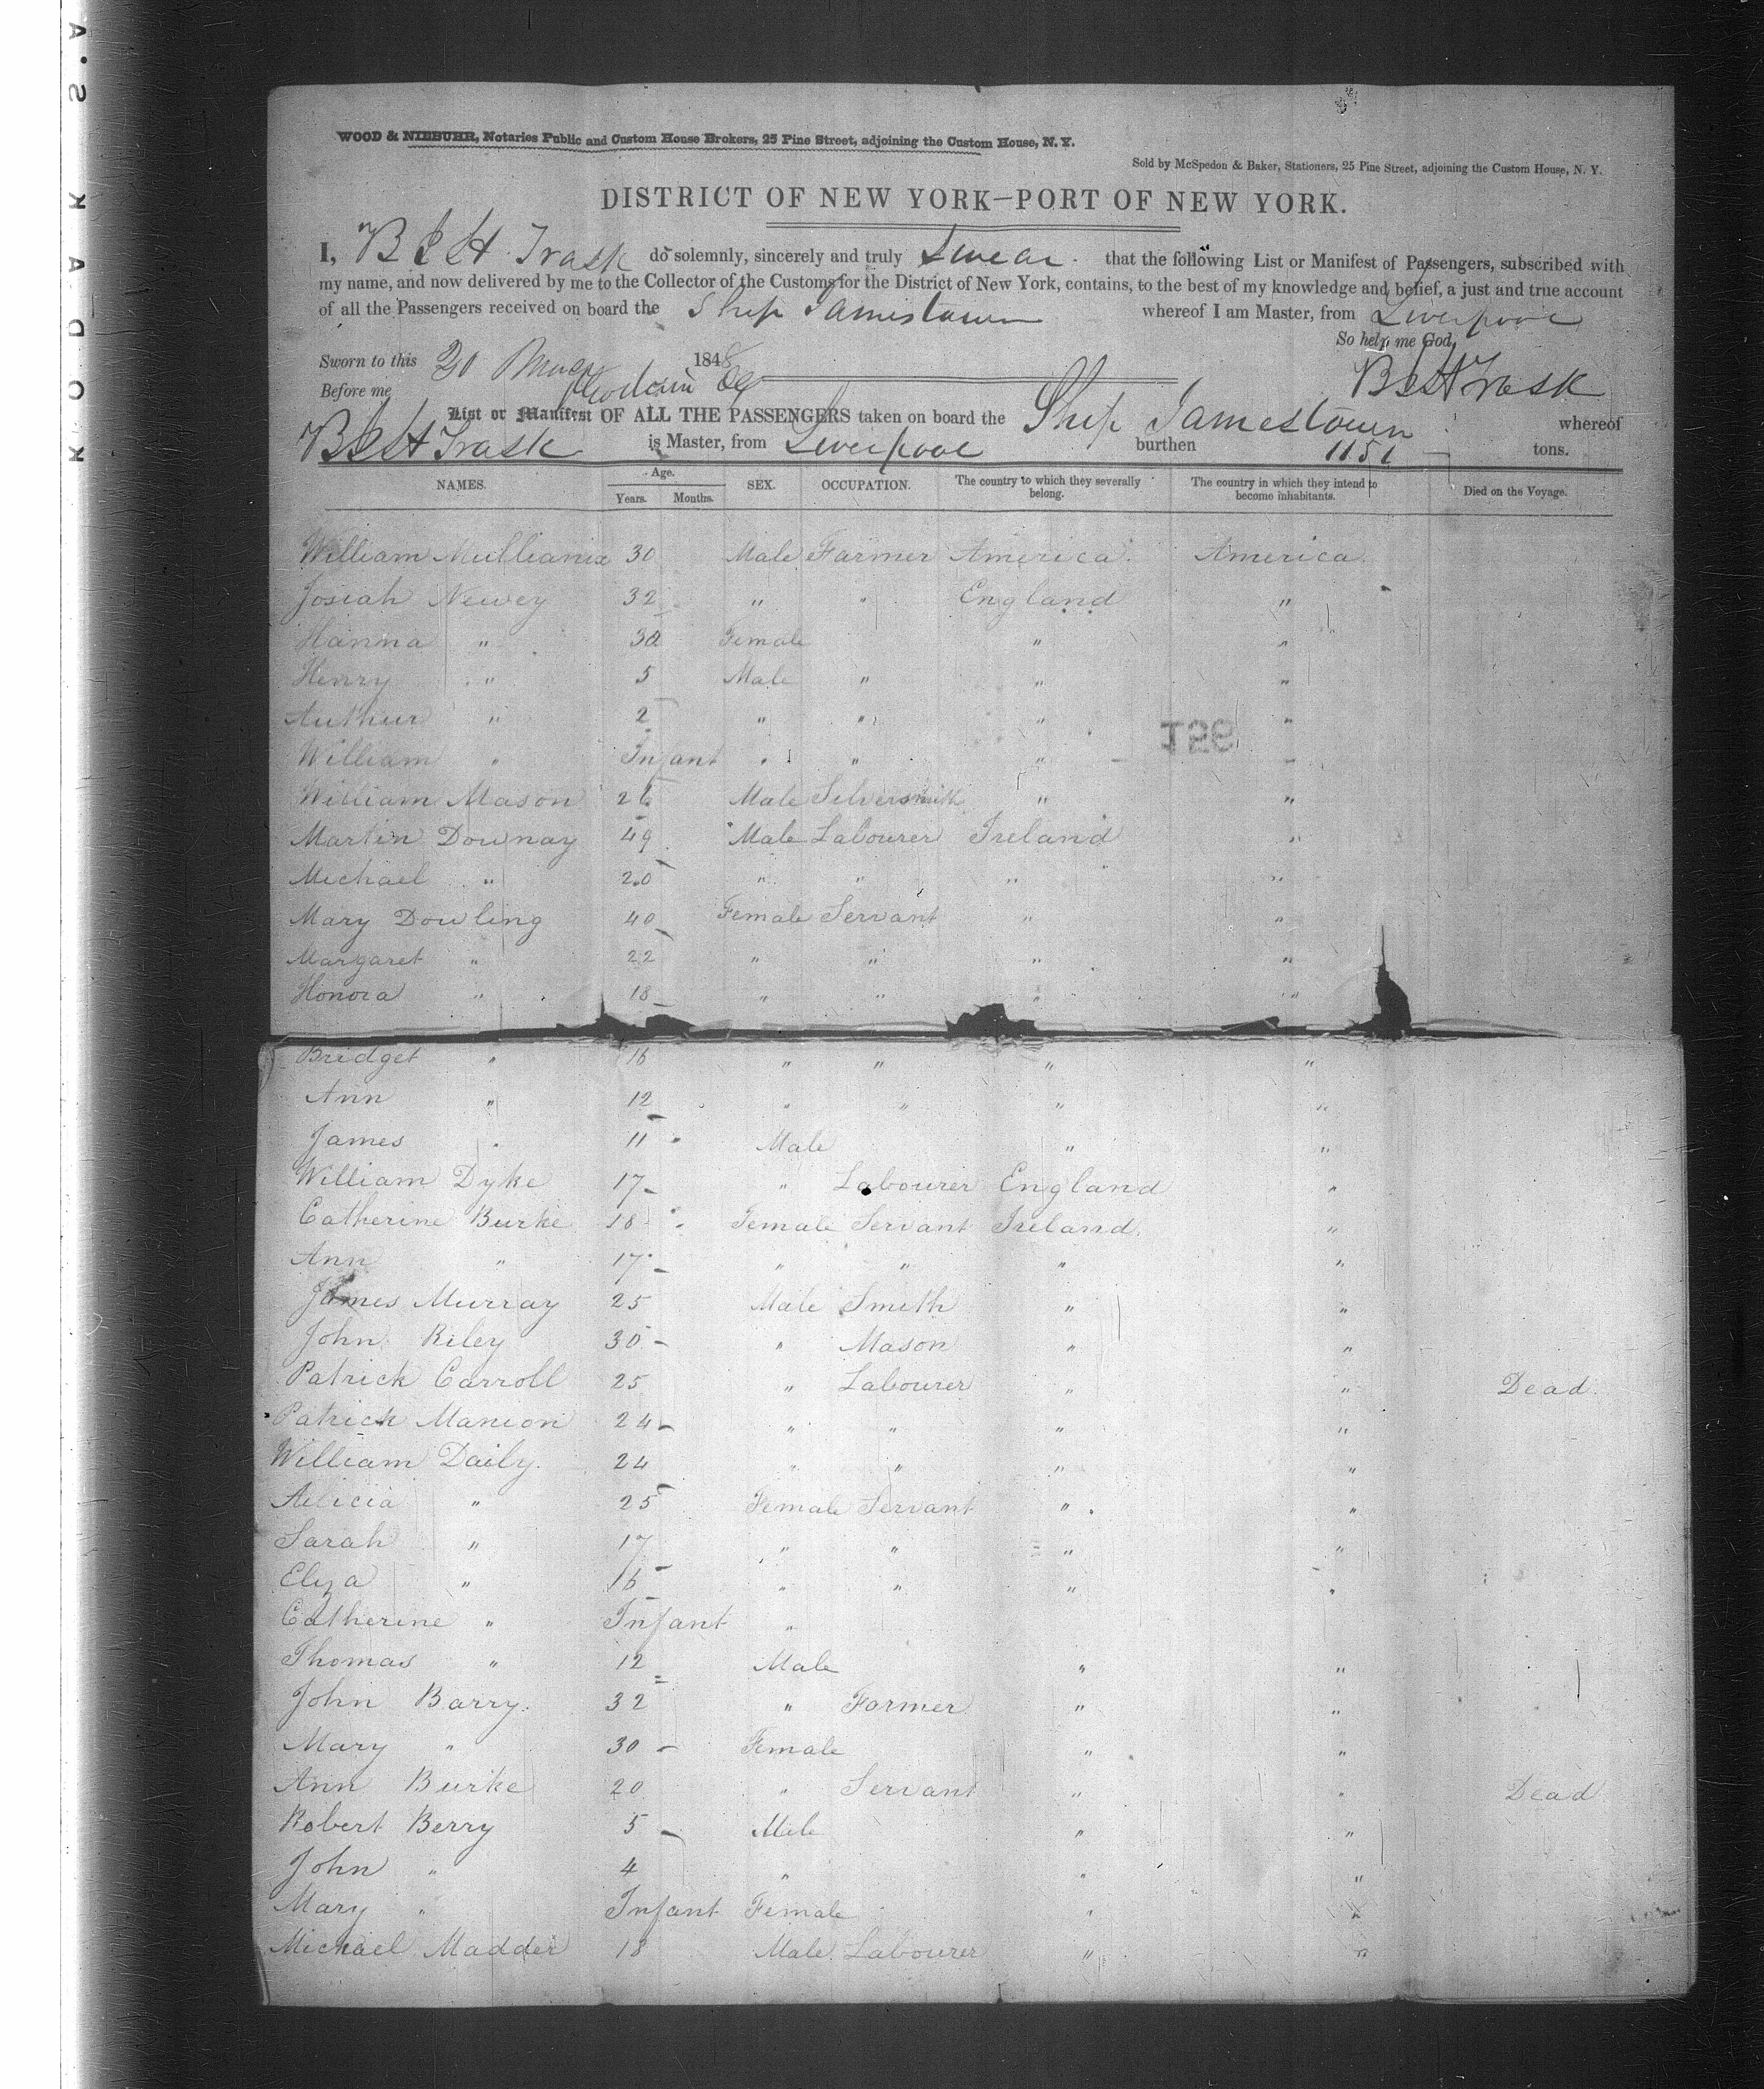 KODAK S.A
WOOD & NIEBUHR, Notaries Public and Custom House Brokers, 25 Pine Street, adjoining the Custom House, N. Y.
Sold by McSpedon & Baker, Stationers, 25 Pine Street, adjoining the Custom House, N. Y.
DISTRICT OF NEW YORK—PORT OF NEW YORK.
I, Trask do solemnly, sincerely and truly Swear that the following List or Manifest of Passengers, subscribed with
my name, and now delivered by me to the Collector of the Customs for the District of New York, contains, to the best of my knowledge and belief, a just and true account
of all the Passengers received on board the Ship Jamestown whereof I am Master, from Liverpool
So help me God,
Sworn to this 30 1848
Before me Trask
List or Manifest OF ALL THE PASSENGERS taken on board the Ship Jamestown whereof
Trask is Master, from Liverpool burthen 1151 tons.
NAMES. Age. Years. Months. SEX. OCCUPATION. The country to which they severally belong. The country in which they intend to become inhabitants. Died on the Voyage.
William Mullianix 30 Male Farmer America America
Josiah Newey 32 " " England "
Hanna " 30 Female " "
Henry " 5 Male " " "
Authur " 2 " " " "
William " Infant " " " "
William Mason 26 Male Silversmith " "
Martin Downay 49 Male Labourer Ireland "
Michael " 20 " " " "
Mary Dowling 40 Female Servant " "
Margaret " 22 " " " "
Honora " 18 " " " "
Bridget " 16 " " " "
Ann " 12 " " " "
James " 11 Male " "
William Dyke 17 " Labourer England "
Catherine Burke 18 Female Servant Ireland "
Ann " 17 " " " "
James Murray 25 Male Smith " "
John Riley 30 " Mason " "
Patrick Carroll 25 " Labourer " " Dead
Patrick Manion 24 " " " "
William Daily 24 " " " "
Alicia " 25 Female Servant " "
Sarah " 17 " " " "
Eliza " 16 " " " "
Catherine " Infant "
Thomas " 12 Male " "
John Barry 32 " Farmer " "
Mary " 30 Female " "
Ann Burke 20 " Servant " " Dead
Robert Berry 5 Male " "
John " 4 " " "
Mary " Infant Female " "
Michael Madder 18 Male Labourer " "